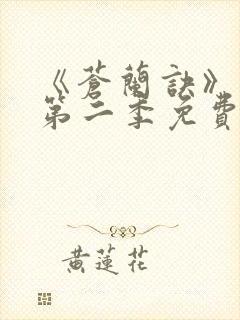 《蒼蘭訣》
第二季免費
黃蓮花